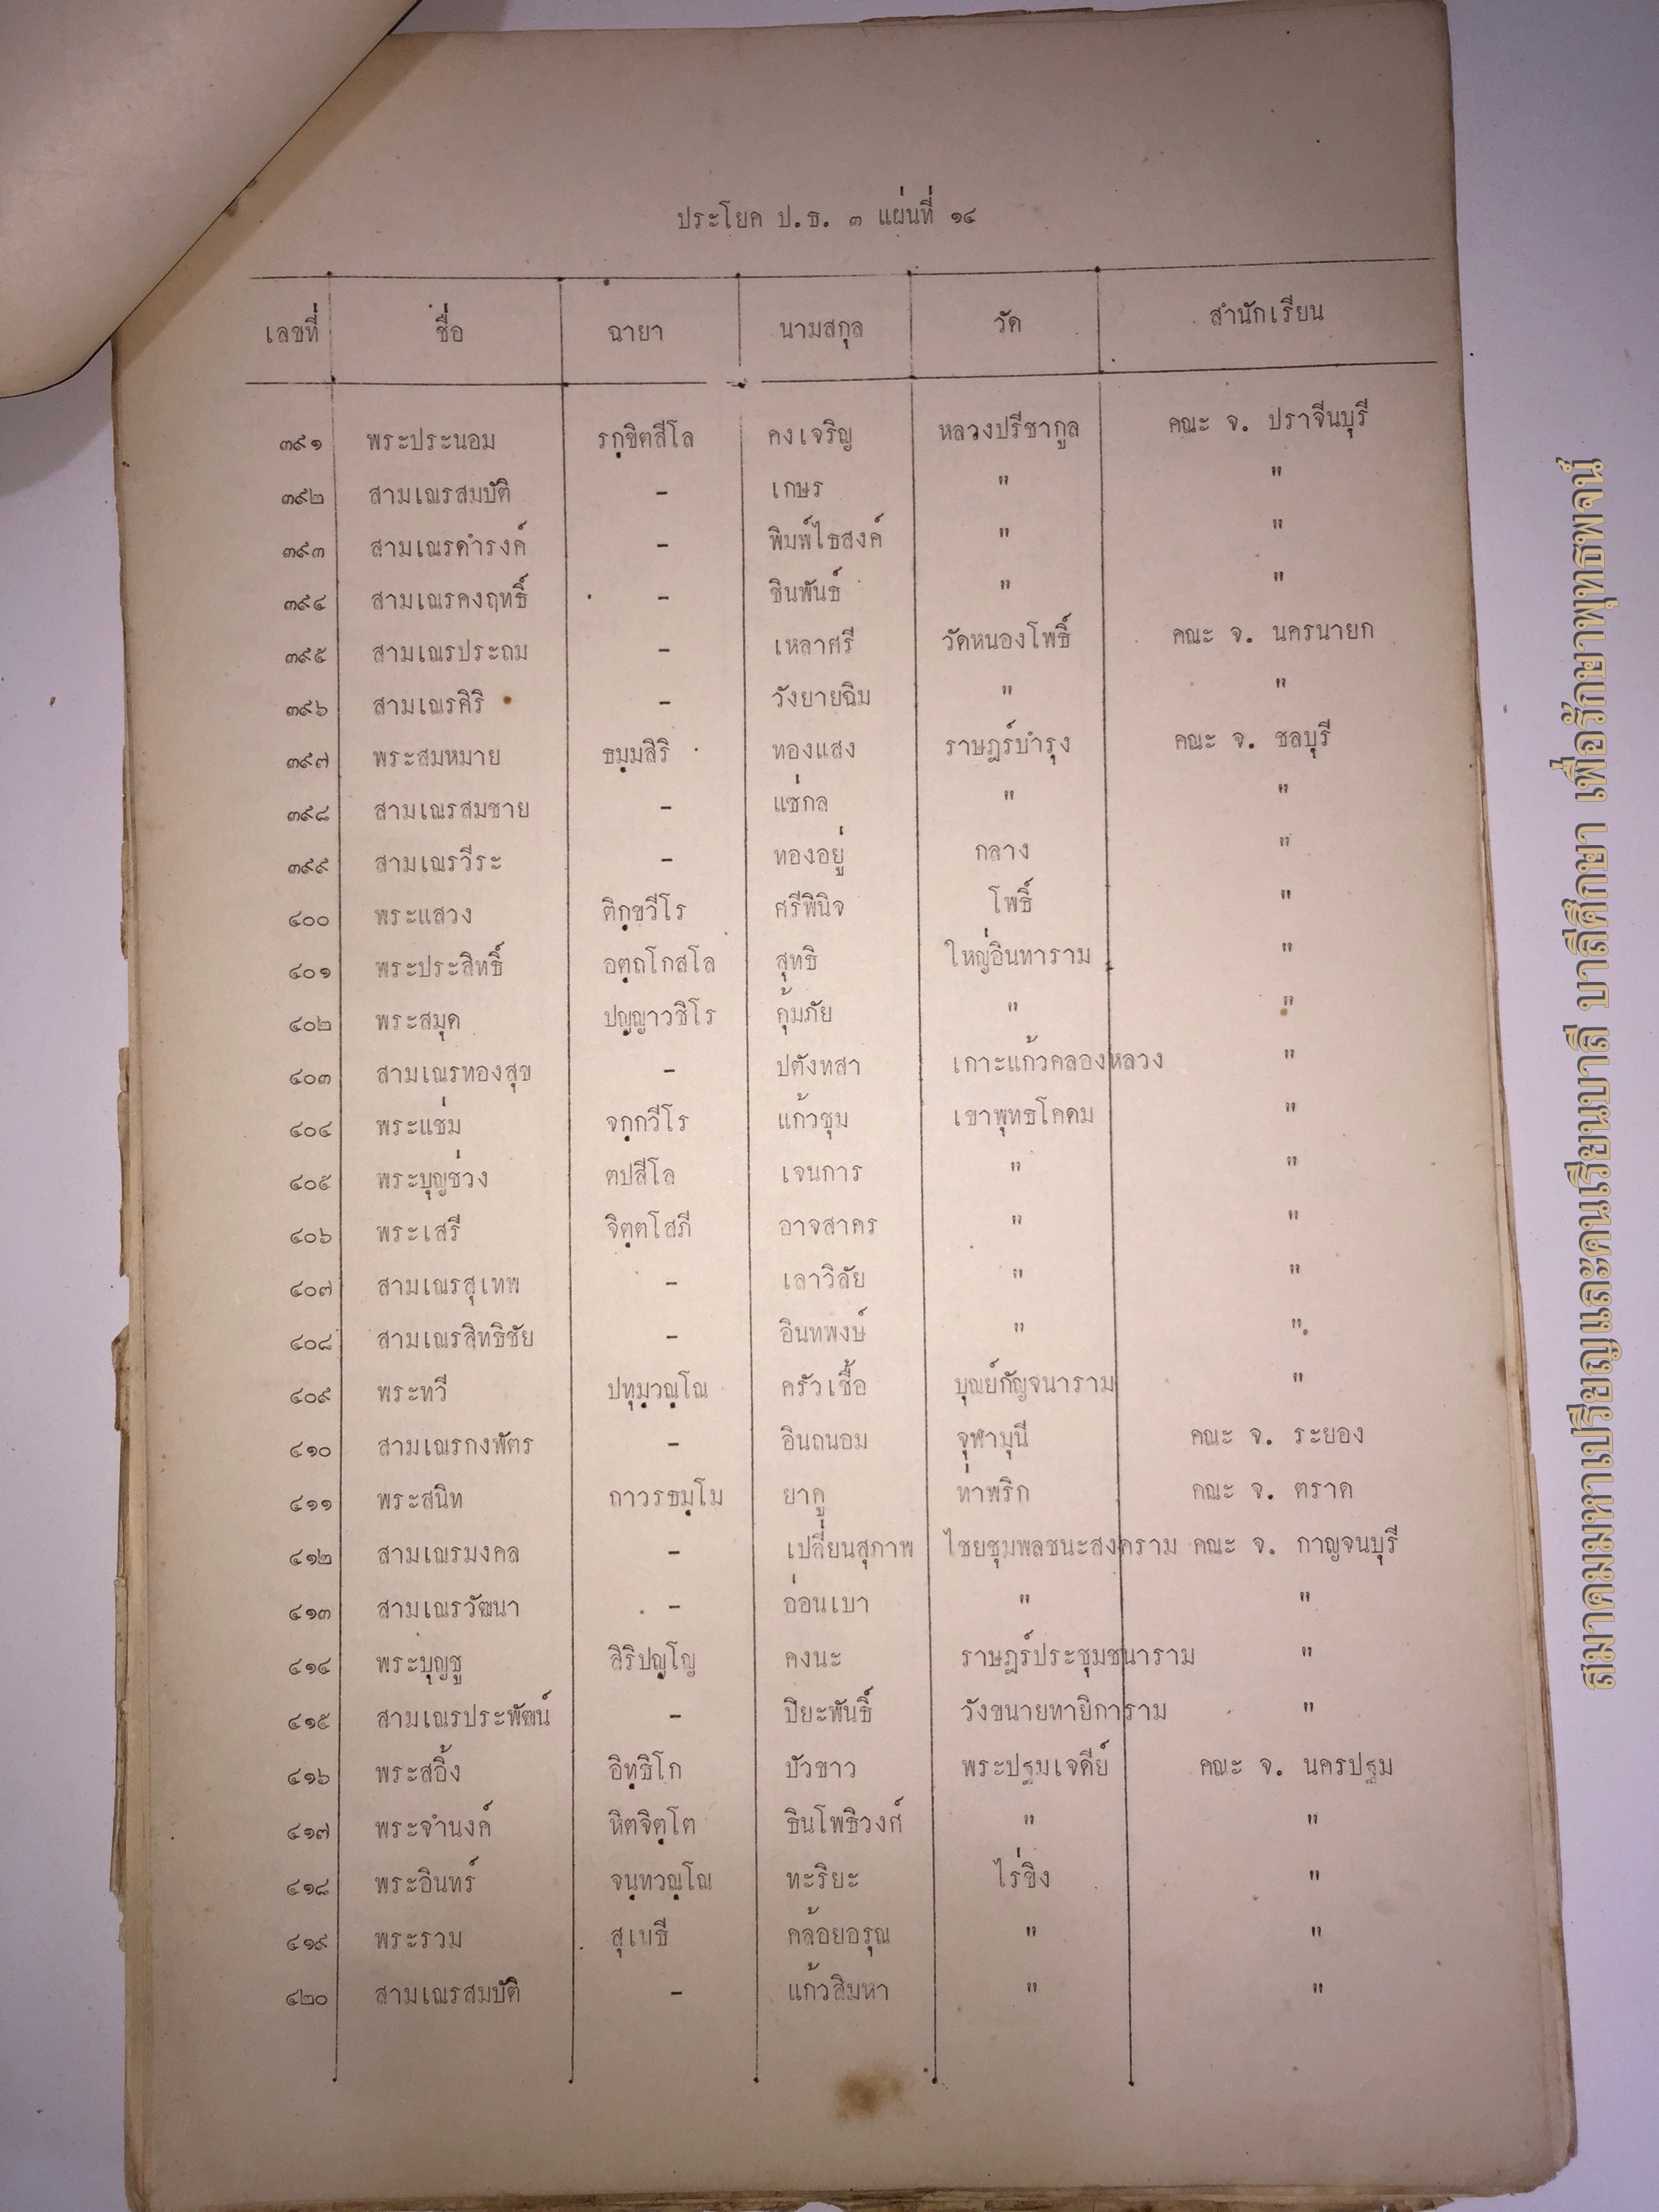 ประโยค ป.ธ. ๓ แผ่นที่ ๑๔
เลขที่ ชื่อ ฉายา นามสกุล วัด สำนักเรียน
๓๙๑ พระประนอม รกฺขิตสีโล คงเจริญ หลวงปรีชากูล คณะ จ. ปราจีนบุรี
๓๙๒ สามเณรสมบัติ - เกษร " "
๓๙๓ สามเณรดำรงค์ - พิมพ์ไธสงค์ " "
๓๙๔ สามเณรคงฤทธิ์ - ชินพันธ์ " "
๓๙๕ สามเณรประถม - เหลาศรี วัดหนองโพธิ์ คณะ จ. นครนายก
๓๙๖ สามเณรศิริ - วังยายฉิม " "
๓๙๗ พระสมหมาย ธมฺมสิริ ทองแสง ราษฎร์บำรุง คณะ จ. ชลบุรี
๓๙๘ สามเณรสมชาย - แซ่กล " "
๓๙๙ สามเณรวีระ - ทองอยู่ กลาง "
๔๐๐ พระแสวง ติกฺขวีโร ศรีพินิจ โพธิ์ "
๔๐๑ พระประสิทธิ์ อตฺถโกสโล สุทธิ ใหญ่อินทาราม "
๔๐๒ พระสมุด ปญฺญาวชิโร คุ้มภัย " "
๔๐๓ สามเณรทองสุข - ปตังทสา เกาะแก้วคลองหลวง "
๔๐๔ พระแช่ม จกฺกวีโร แก้วชุม เขาพุทธโคดม "
๔๐๕ พระบุญช่วง ตปสีโล เจนการ " "
๔๐๖ พระเสรี จิตฺตโสภี อาจสาคร " "
๔๐๗ สามเณรสุเทพ - เลาวิลัย " "
๔๐๘ สามเณรสิทธิชัย - อินทพงษ์ " "
๔๐๙ พระทวี ปทุมฺวณฺโณ ครัวเชื้อ บุณย์กัญจนาราม "
๔๑๐ สามเณรกงพัตร - อินถนอม จุฬามุนี คณะ จ. ระยอง
๔๑๑ พระสนิท ถาวรธมฺโม ยาคู ท่าพริก คณะ จ. ตราด
๔๑๒ สามเณรมงคล - เปลี่ยนสุภาพ ไชยชุมพลชนะสงคราม คณะ จ. กาญจนบุรี
๔๑๓ สามเณรวัฒนา - อ่อนเบา " "
๔๑๔ พระบุญชู สิริปญฺโญ คงนะ ราษฎร์ประชุมชนาราม "
๔๑๕ สามเณรประพัฒน์ - ปิยะพันธิ์ วังขนายทายิการาม "
๔๑๖ พระสอิ้ง อิทฺธิโก บัวขาว พระปฐมเจดีย์ คณะ จ. นครปฐม
๔๑๗ พระจำนงค์ หิตจิตฺโต ธินโพธิวงศ์ " "
๔๑๘ พระอินทร์ จนฺทวณฺโณ ทะริยะ ไร่ขิง "
๔๑๙ พระรวม สุเมธี คล้อยอรุณ " "
๔๒๐ สามเณรสมบัติ - แก้วสิมหา " "
สมาคมมหาเปรียญและคนเรียนบาลี บาลีศึกษา เพื่อรักษาพุทธพจน์